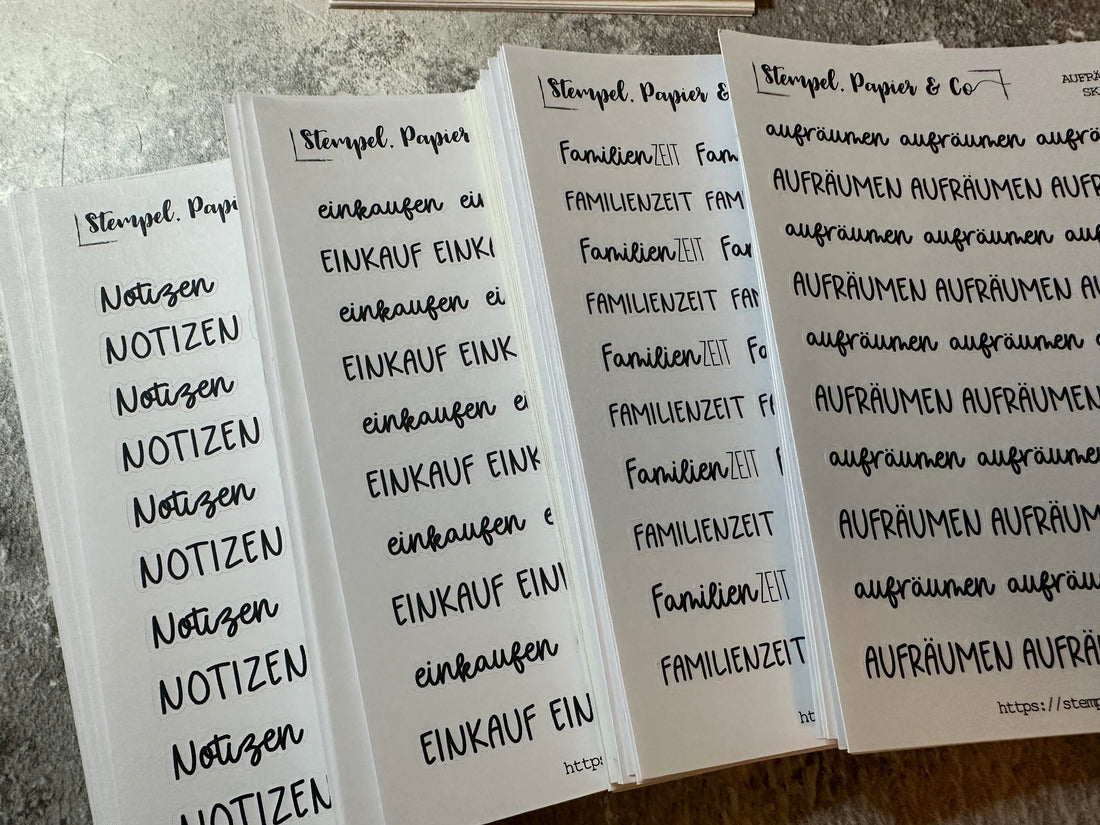 Stempel, Papi
Notizen
NOTIZEN
Notizen
NOTIZEN
Notizen
NOTIZEN
Notizen
NOTIZEN
Notizen
NOTIZEN
Stempel, Papier
einkaufen ein
EINKAUF EINK
einkaufen ei
EINKAUF EINK
einkaufen ei
EINKAUF EINK
einkaufen e
EINKAUF EINI
einkaufen
EINKAUF EIN
https
Stempel, Papier &
FamilienZEIT Fam
FAMILIENZEIT FAM
FamilienZEIT Fa
FAMILIENZEIT FAM
FamilienZEIT Fa
FAMILIENZEIT FA
FamilienZEIT
FAMILIENZEIT
FamilienZEIT
FAMILIENZEIT
ht
Stempel, Papier & Co
AUFRÄ
SK
aufräumen aufräumen aufrä
AUFRÄUMEN AUFRÄUMEN AUFR
aufräumen aufräumen auf
AUFRÄUMEN AUFRÄUMEN AU
aufräumen aufräumen a
AUFRÄUMEN AUFRÄUMEN
aufräumen aufräumen
AUFRÄUMEN AUFRÄUM
aufräumen aufräu
AUFRÄUMEN AUFRÄ
https://stemp